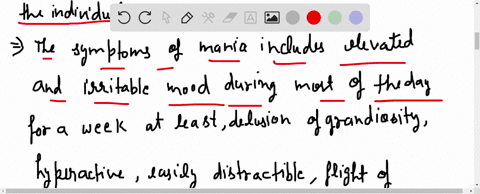 the individu
⇒ The symptoms of mania includes elevated
and irritable mood during most of the day
for a week at least, delusion of grandiosity,
hyperactive, easily distractible, flight of